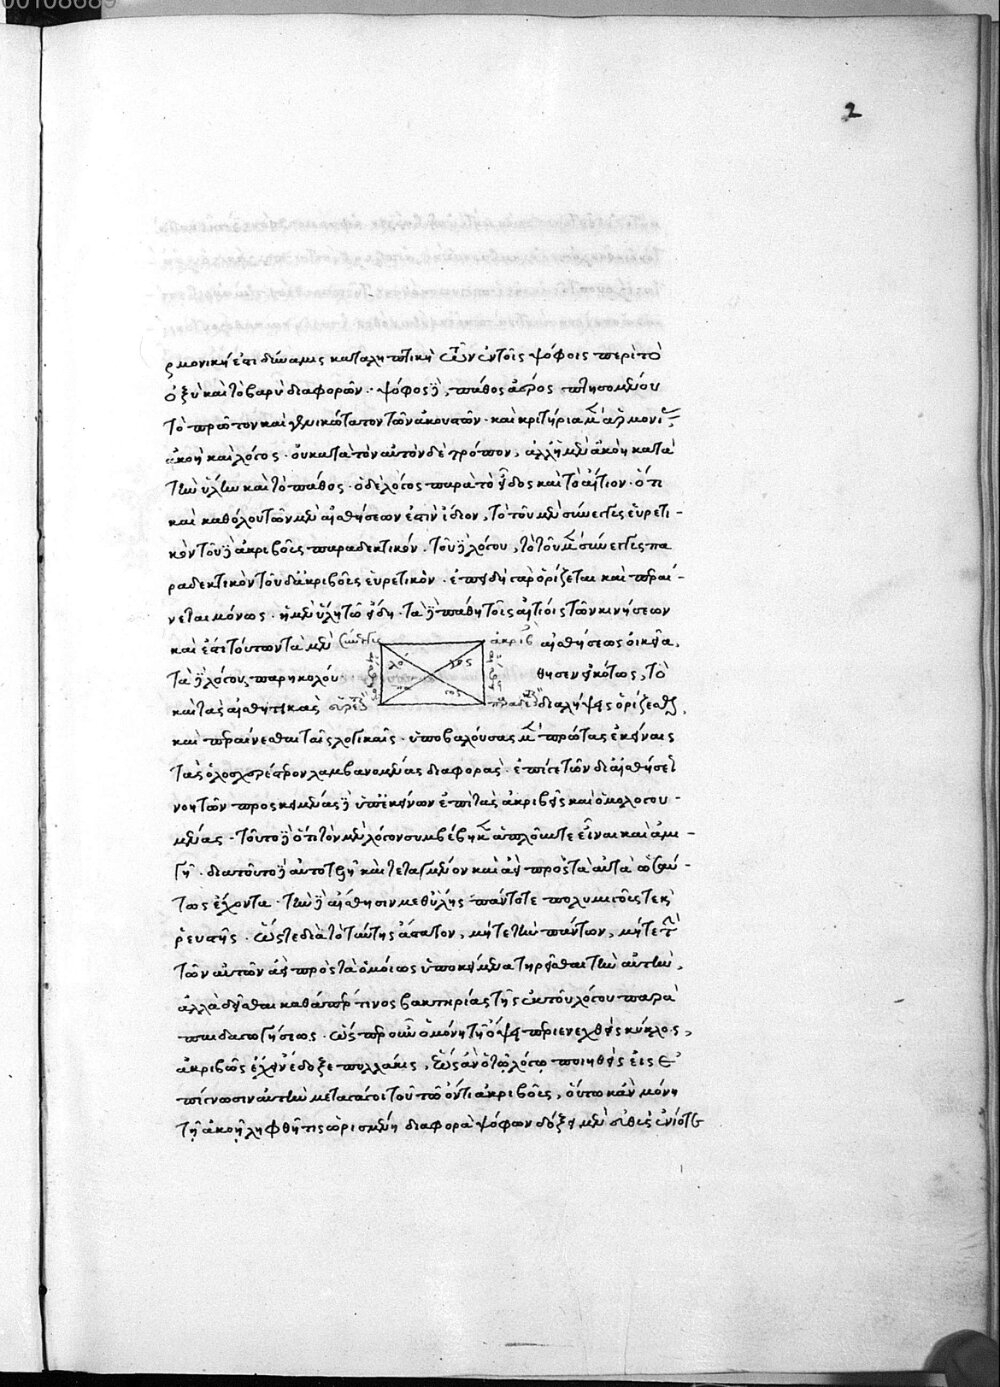 00108689
2
ρμονική ἐστι δύναμις καταληπτικὴ τῶν ἐν τοῖς ψόφοις περὶ τὸ
ὀξὺ καὶ τὸ βαρὺ διαφορῶν· ψόφος δὲ, πάθος ἀέρος πλησσομένου
τὸ πρῶτον καὶ γενικώτατον τῶν ἀκουστῶν· καὶ κριτήρια μὲν ἁρμονίας
ἀκοὴ καὶ λόγος· οὐ κατὰ τὸν αὐτὸν δὲ τρόπον, ἀλλ' ἡ μὲν ἀκοὴ κατὰ
τὴν ὕλην καὶ τὸ πάθος· ὁ δὲ λόγος παρὰ τὸ εἶδος καὶ τὸ αἴτιον· ὅτι
καὶ καθόλου τῶν μὲν αἰσθήσεων ἐστὶν ἴδιον, τὸ τοῦ μὲν σύνεγγυς εὑρετι-
κὸν τοῦ δὲ ἀκριβοῦς παραδεκτικόν· τοῦ δὲ λόγου, τὸ τοῦ μὲν σύνεγγυς πα
ραδεκτικὸν τοῦ δ' ἀκριβοῦς εὑρετικόν· ἐπειδὴ γὰρ ὁρίζεται καὶ περαί-
νεται μόνως· ἡ μὲν ὕλη τῷ εἴδει· τὰ δὲ πάθη τοῖς αἰτίοις τῶν κινήσεων
καὶ ἔστι τούτων τὰ μὲν σύνεγγυς ἀκριβ αἰσθήσεως οἰκεῖα,
τὰ δὲ λόγου, παρηκολού· λό γος θησεν εἰκότως, τὸ
καὶ τὰς αἰσθητικὰς εὑρετ παραδεκτ διαλήψεις ὁρίζεσθαι,
καὶ περαίνεσθαι ταῖς λογικαῖς· ὑποβαλούσας μὲν πρώτας ἐκείναις
τὰς ὁλοσχερέστερον λαμβανομένας διαφορὰς· ἐπί γε τῶν δι' αἰσθήσεως
νοητῶν προσκειμένας δὲ ὑπ' ἐκείνων ἐπὶ τὰς ἀκριβεῖς καὶ ὁμολογου-
μένας· τοῦτο δὲ ὅτι τὸν μὲν λόγον συμβέβηκεν ἁπλοῦν τε εἶναι καὶ ἀμι-
γῆ· διὰ τοῦτο δὲ αὐτοτελῆ καὶ τεταγμένον καὶ ἀεὶ πρὸς τὰ αὐτὰ ὡσαύ-
τως ἔχοντα· τὴν δὲ αἴσθησιν μεθ' ὕλης πάντοτε πολυμιγοῦς τε καὶ
ῥευστῆς· ὥστε διὰ τὸ ταύτης ἄστατον, μήτε τὴν πάντων, μήτε τὴν
τῶν αὐτῶν ἀεὶ πρὸς τὰ ὁμοίως ὑποκείμενα τηρεῖσθαι τὴν αὐτὴν,
ἀλλὰ δεῖσθαι καθάπερ τινὸς βακτηρίας τῆς ἐκ τοῦ λόγου παρὰ
παιδαγωγήσεως· ὥσπερ οὖν ὁ μόνῃ τῇ ὄψει περιενεχθεὶς κύκλος,
ἀκριβῶς ἔχειν ἔδοξε πολλάκις, ἕως ἂν ὁ τῷ λόγῳ ποιηθεὶς εἰς ἐ
πίγνωσιν αὐτὴν μεταγάγοι τοῦ τῷ ὄντι ἀκριβοῦς, οὕτω κἂν μόνῃ
τῇ ἀκοῇ ληφθῇ τις ὡρισμένη διαφορὰ ψόφων δόξει μὲν εὐθὺς ἐνίοτε